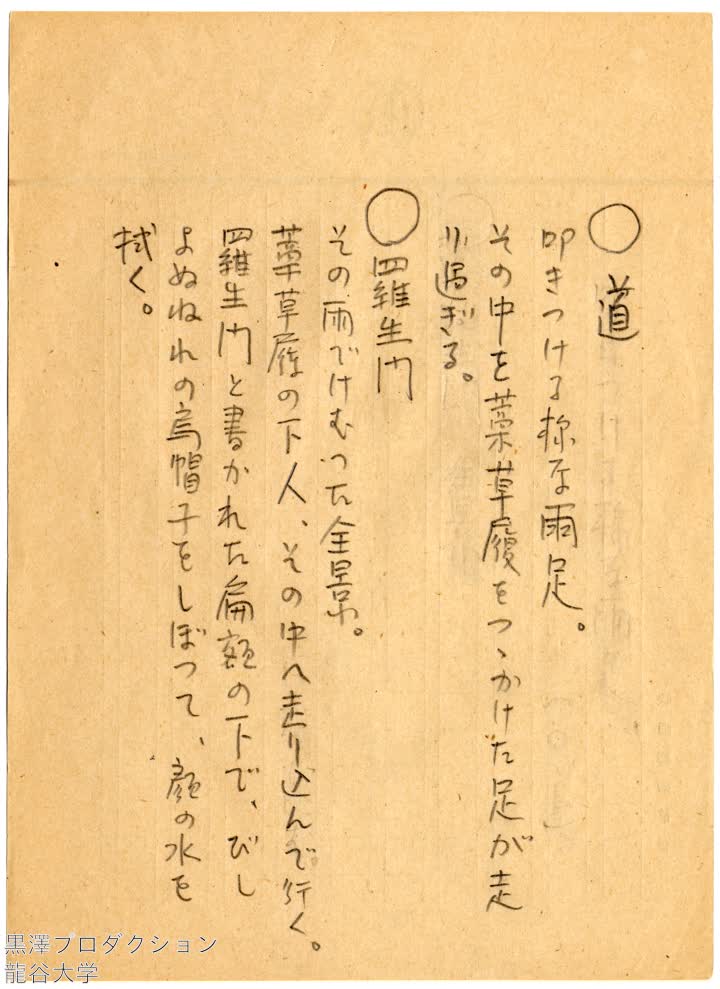 ○ 道
叩きつける様な雨足。
その中を藁草履をつゝかけた足が走
り過ぎる。
○ 羅生門
その雨でけむつた全景。
藁草履の下人、その中へ走り込んで行く。
羅生門と書かれた扁額の下で、びし
よぬれの烏帽子をしぼつて、顔の水を
拭く。
黒澤プロダクション
龍谷大学